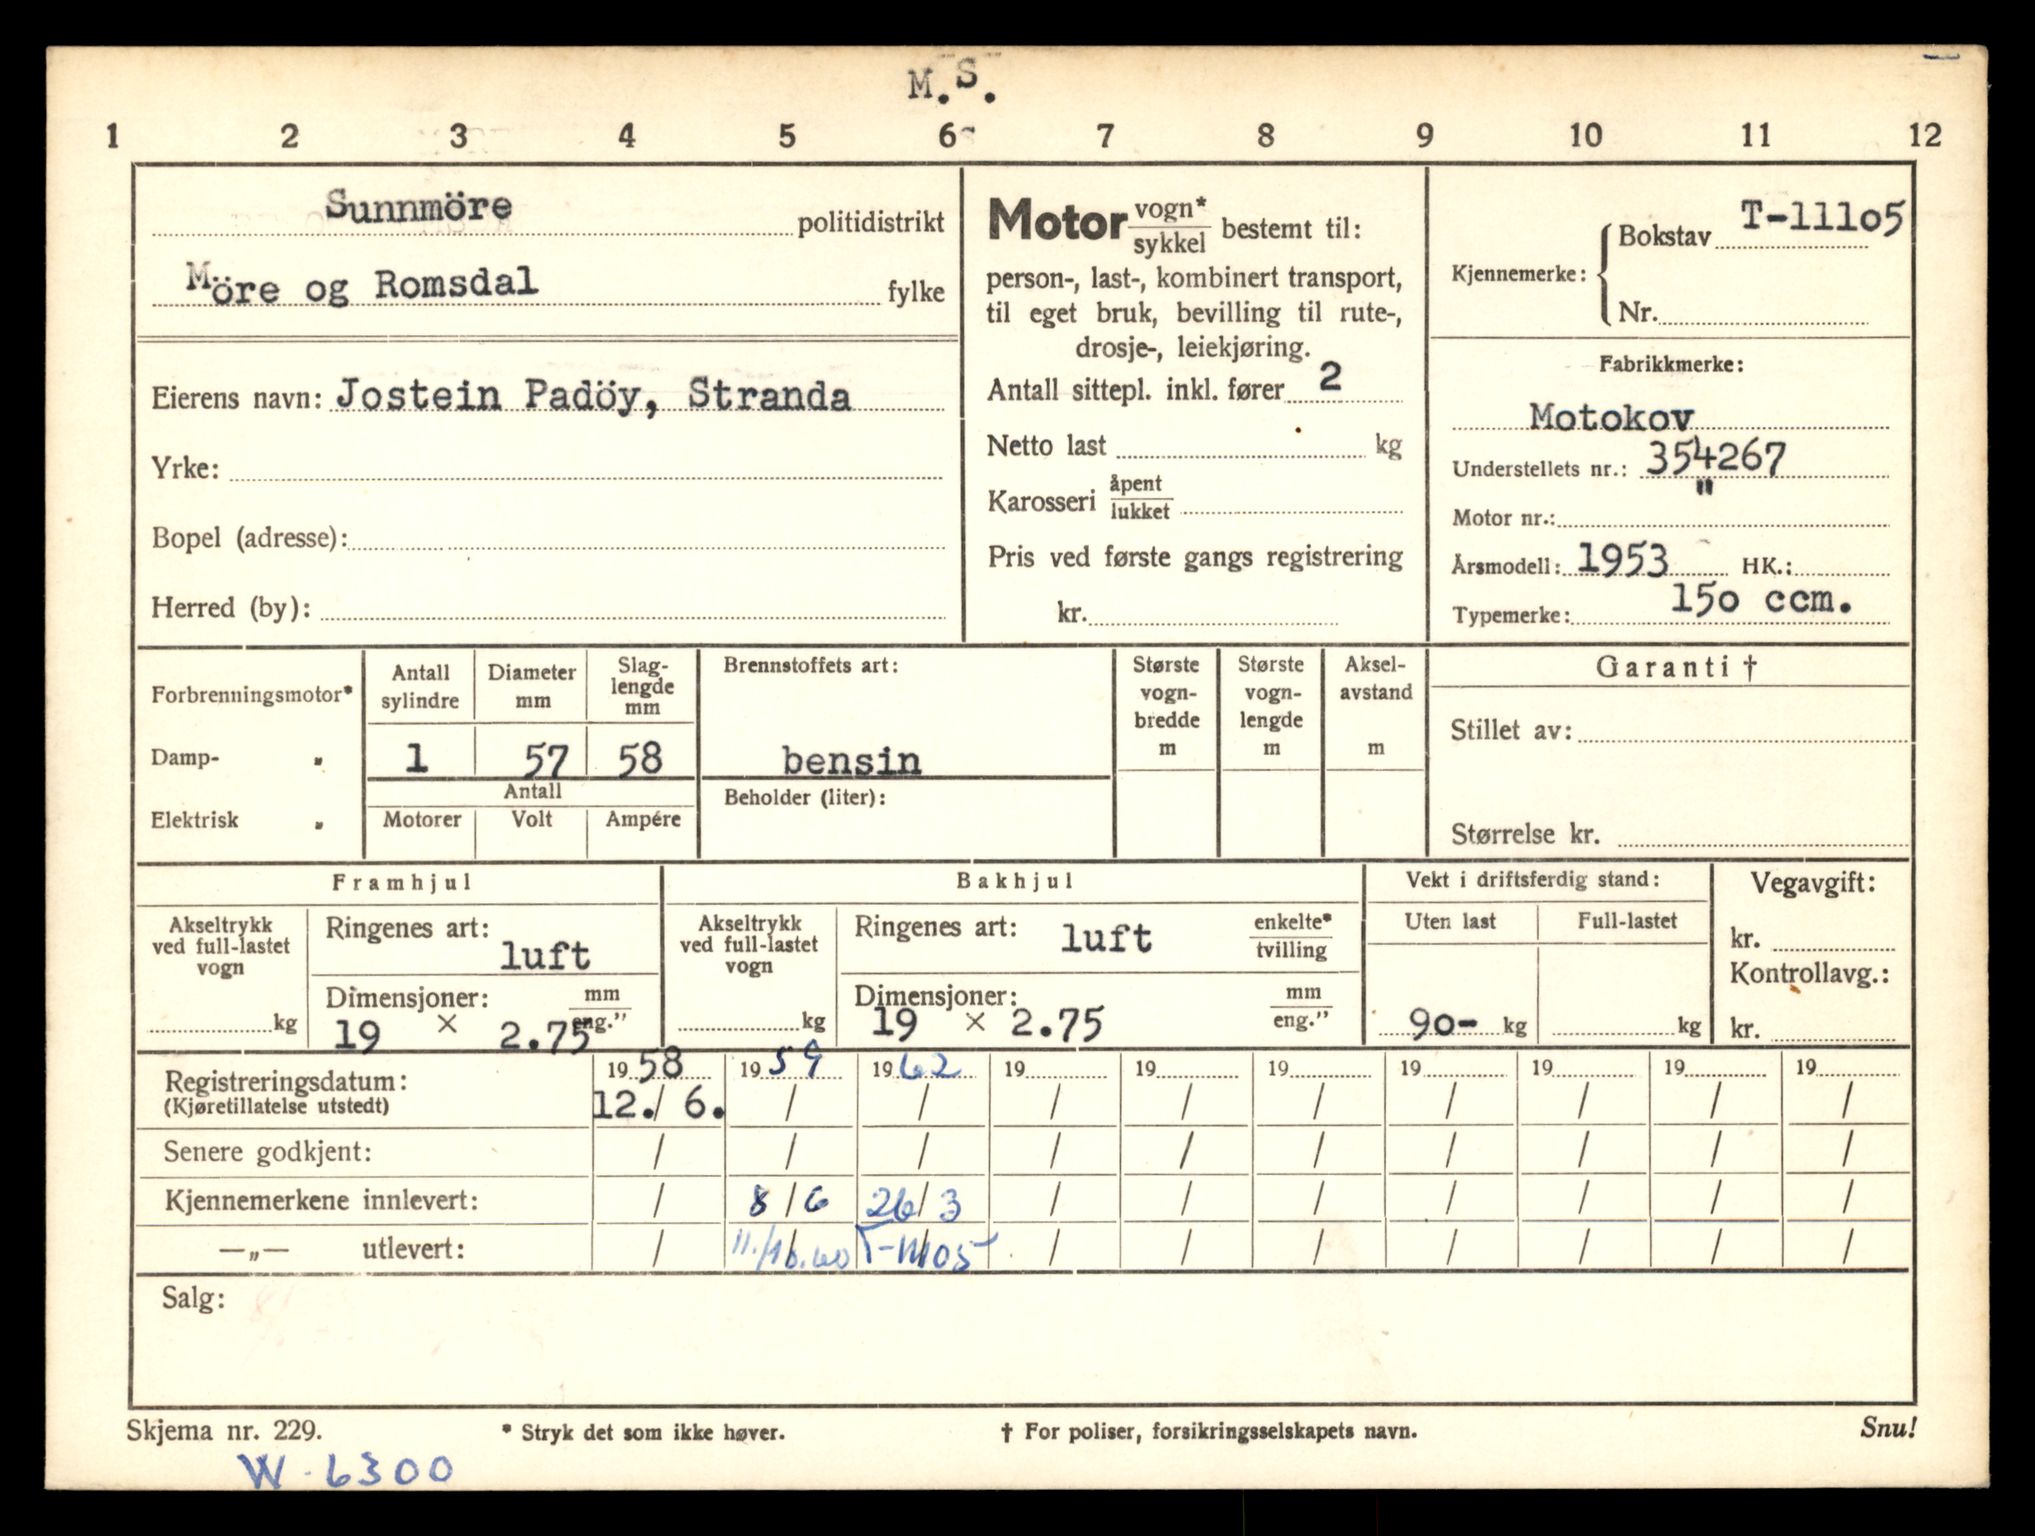 M.S.
1 2 3 4 5 6 7 8 9 10 11 12
Sunnmöre politidistrikt
Möre og Romsdal fylke
Eierens navn: Jostein Padöy, Stranda
Yrke:
Bopel (adresse):
Herred (by):
Motor vogn* sykkel bestemt til:
person-, last-, kombinert transport,
til eget bruk, bevilling til rute-,
drosje-, leiekjøring.
Antall sittepl. inkl. fører 2
Netto last kg
Karosseri åpent lukket
Pris ved første gangs registrering
kr.
Kjennemerke: Bokstav T-11105
Nr.
Fabrikkmerke:
Motokov
Understellets nr.: 354267
Motor nr.: "
Årsmodell: 1953 HK.:
Typemerke: 150 ccm.
Forbrenningsmotor*
Damp- "
Elektrisk "
Antall sylindre
1
Diameter mm
57
Slag-
lengde
mm
58
Antall
Motorer Volt Ampére
Brennstoffets art:
bensin
Beholder (liter):
Største
vogn-
bredde
m
Største
vogn-
lengde
m
Aksel-
avstand
m
Garanti †
Stillet av:
Størrelse kr.
Framhjul
Akseltrykk
ved full-lastet
vogn
kg
Ringenes art:
luft
Dimensjoner: mm eng."
19 × 2.75
Bakhjul
Akseltrykk
ved full-lastet
vogn
kg
Ringenes art: luft enkelte* tvilling
Dimensjoner: mm eng."
19 × 2.75
Vekt i driftsferdig stand:
Uten last Full-lastet
90- kg kg
Vegavgift:
kr.
Kontrollavg.:
kr.
Registreringsdatum: 1958 1959 1962 19 19 19 19 19 19 19
(Kjøretillatelse utstedt) 12./6. / / / / / / / / /
Senere godkjent: / / / / / / / / / /
Kjennemerkene innlevert: / 8/6 26/3 / / / / / / /
—„— utlevert: / 11./10.60 T-11105 / / / / / / /
Salg:
Skjema nr. 229. * Stryk det som ikke høver. † For poliser, forsikringsselskapets navn. Snu!
W-6300